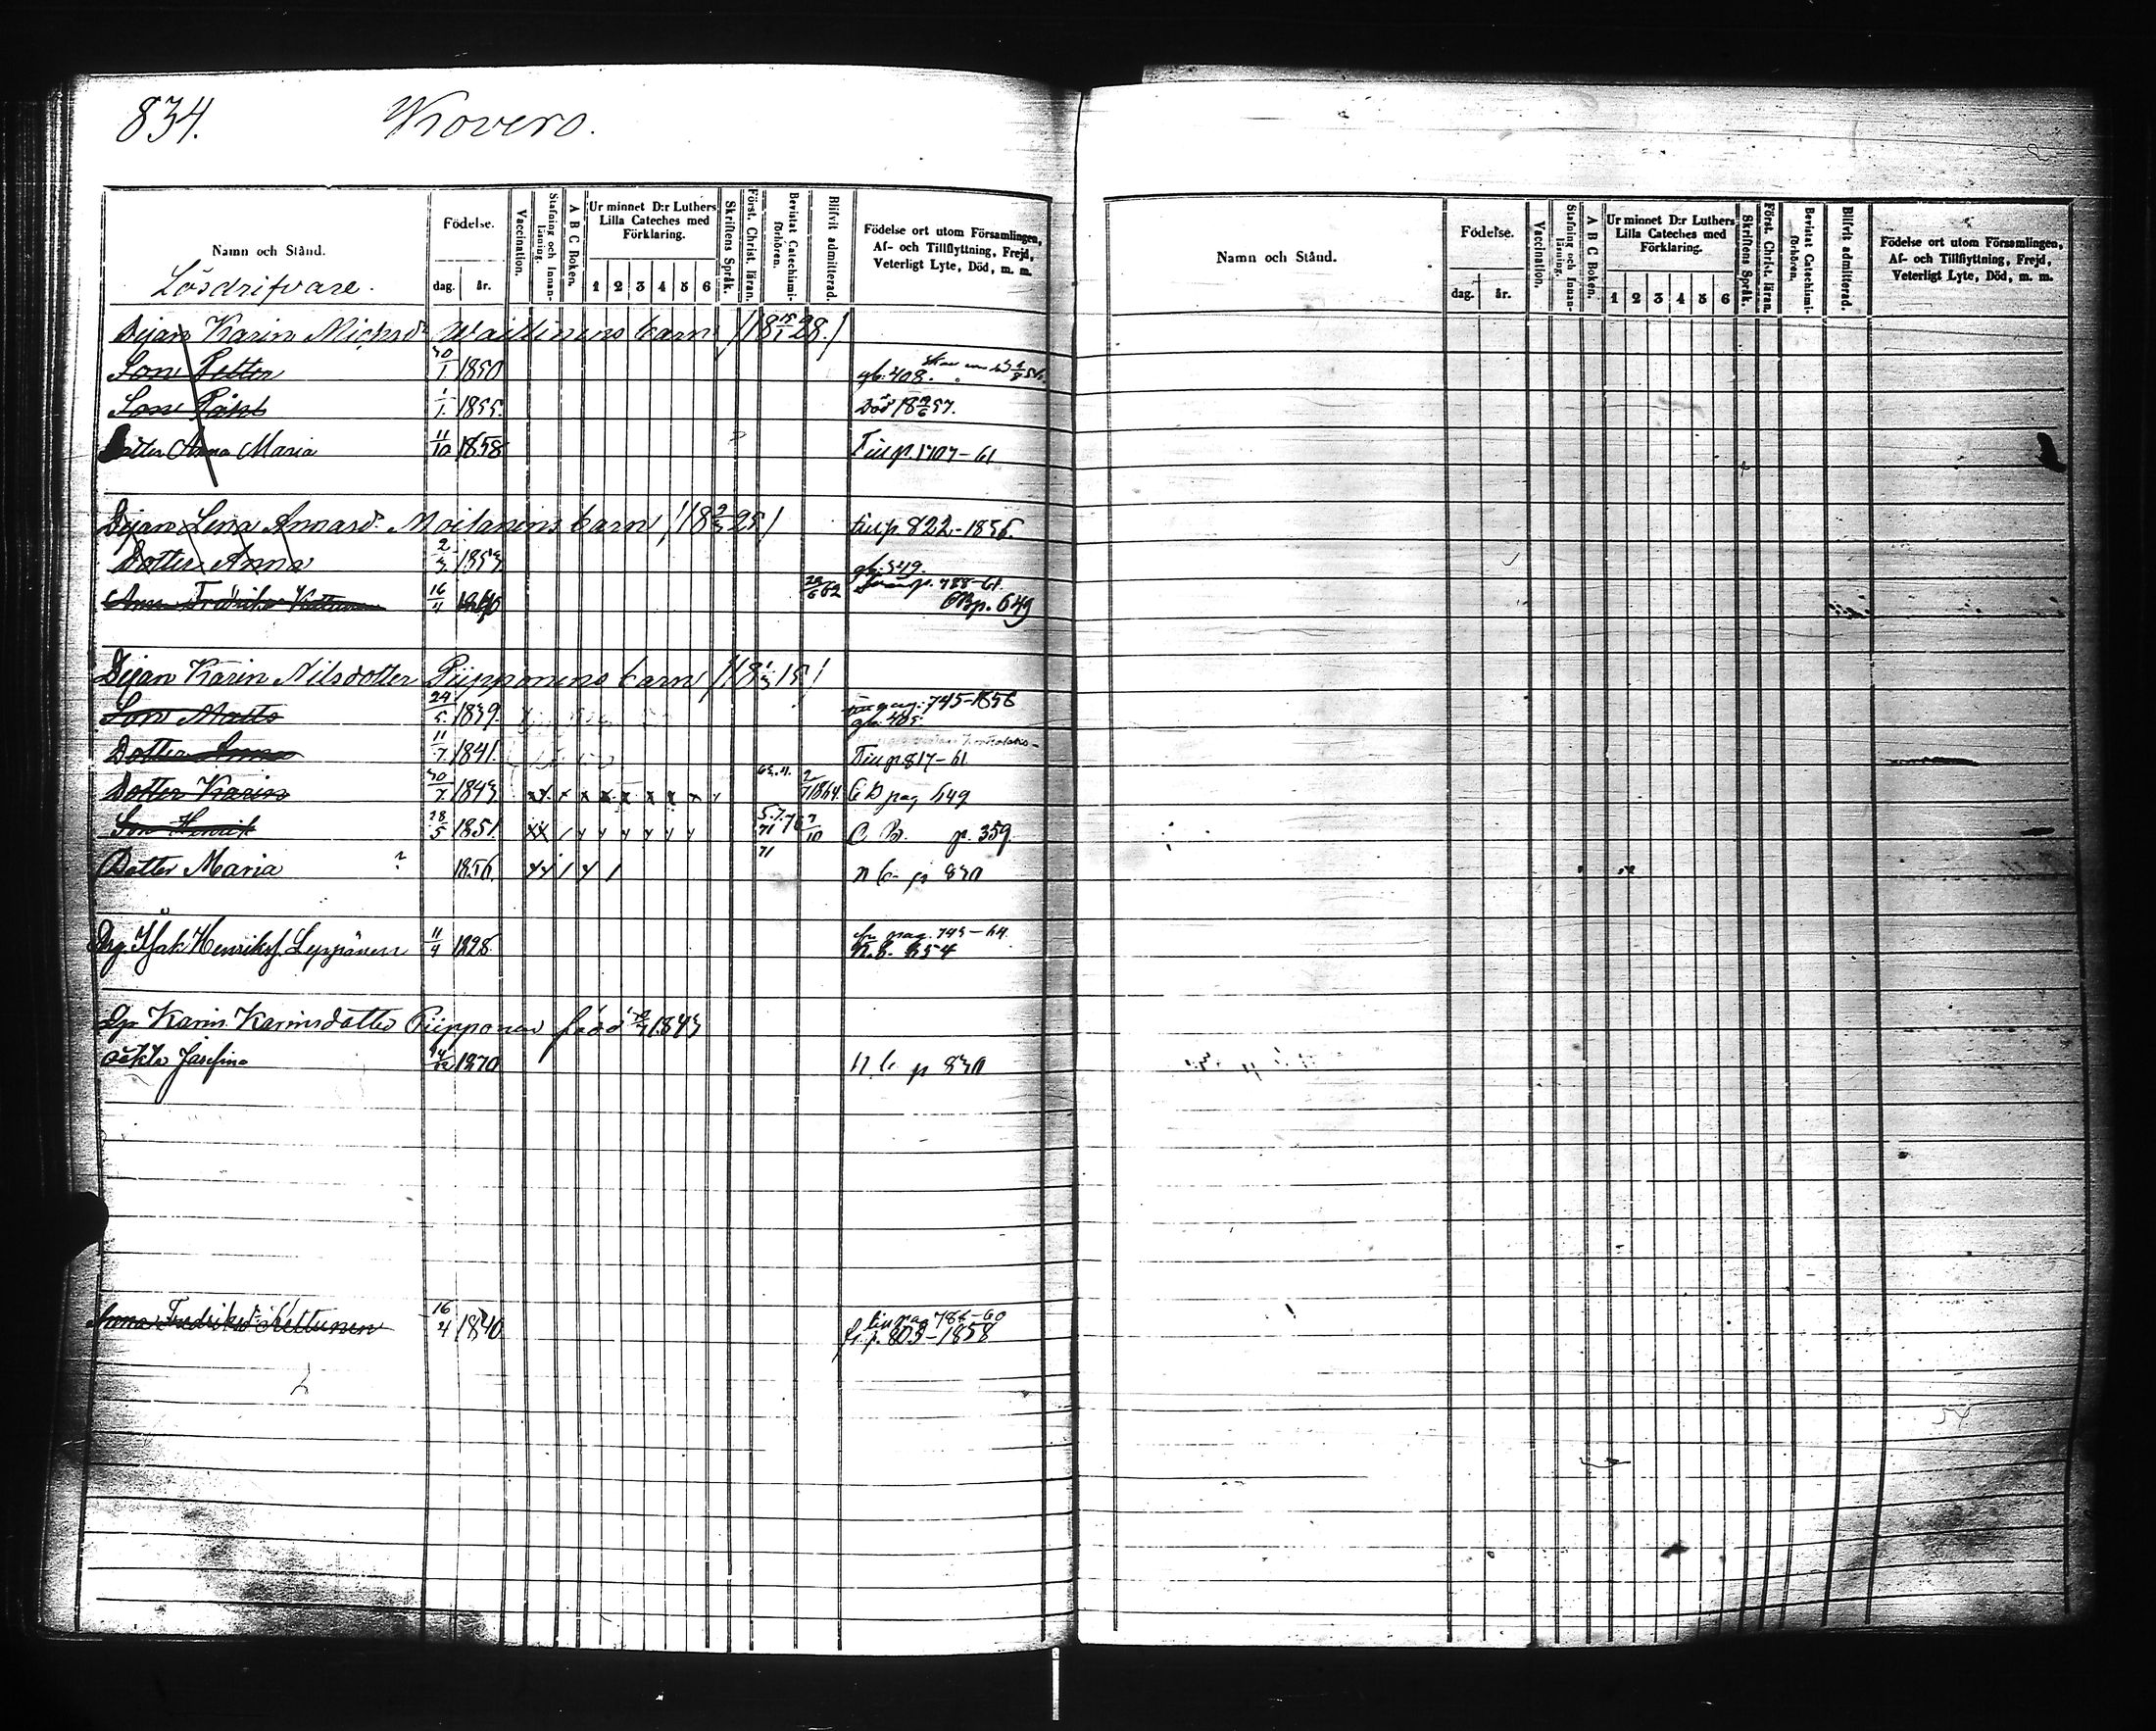 834. Kovero.
Namn och Stånd. Födelse. dag. år. Vaccination. Stafning och Innanläsning. A B C Boken. Ur minnet D:r Luthers Lilla Cateches med Förklaring. 1 2 3 4 5 6 Skriftens Språk. Först. Christ. läran. Bevistat Catechismi-förhören. Blifvit admitterad. Födelse ort utom Församlingen, Af- och Tillflyttning, Frejd, Veterligt Lyte, Död, m. m.
Lösdrifvare.
Pigan Karin Michsdr barn
Son Petter 30/1 1850 gb. 408.
Son 1/1 1855. Död
Dotter Anna Maria 11/10 1858 Till p. 1707-61
Pigan Lena Annasdr Moilanens barn /18 2/3 25/ till p. 822-1856.
Dotter Anna 2/3 1853 gb. 549.
Anna Fredriksdr 16/4 1840 29/6 62 p. 788-61
CB p. 649
Pigan Karin Nilsdotter Piipponens barn
Son Matts 24/5 1839. 745-1858
gb. 405
Dotter Anna 11/7 1841. Till p 817-61
Dotter Karin 30/7 1843 x x x x x x x x x 2/7 1864. C B pag 649
Son Henrik 28/5 1851. 71 7/10 C B. p. 359.
Dotter Maria ? 1856. 71 n b p 830
Drg. Isak Henrikss. Leppänen 11/4 1828. fr pag. 745-64
N. b. 654
Pig. Karin Karinsdotter Piipponen född 30/7 1843
oäkta Josefina 1870 n b p 830
Anna Fredriksdr Kettunen 16/4 1840 till pag 786-60
fr p. 803-1858
Namn och Stånd. Födelse. dag. år. Vaccination. Stafning och Innanläsning. A B C Boken. Ur minnet D:r Luthers Lilla Cateches med Förklaring. 1 2 3 4 5 6 Skriftens Språk. Först. Christ. läran. Bevistat Catechismi-förhören. Blifvit admitterad. Födelse ort utom Församlingen, Af- och Tillflyttning, Frejd, Veterligt Lyte, Död, m. m.